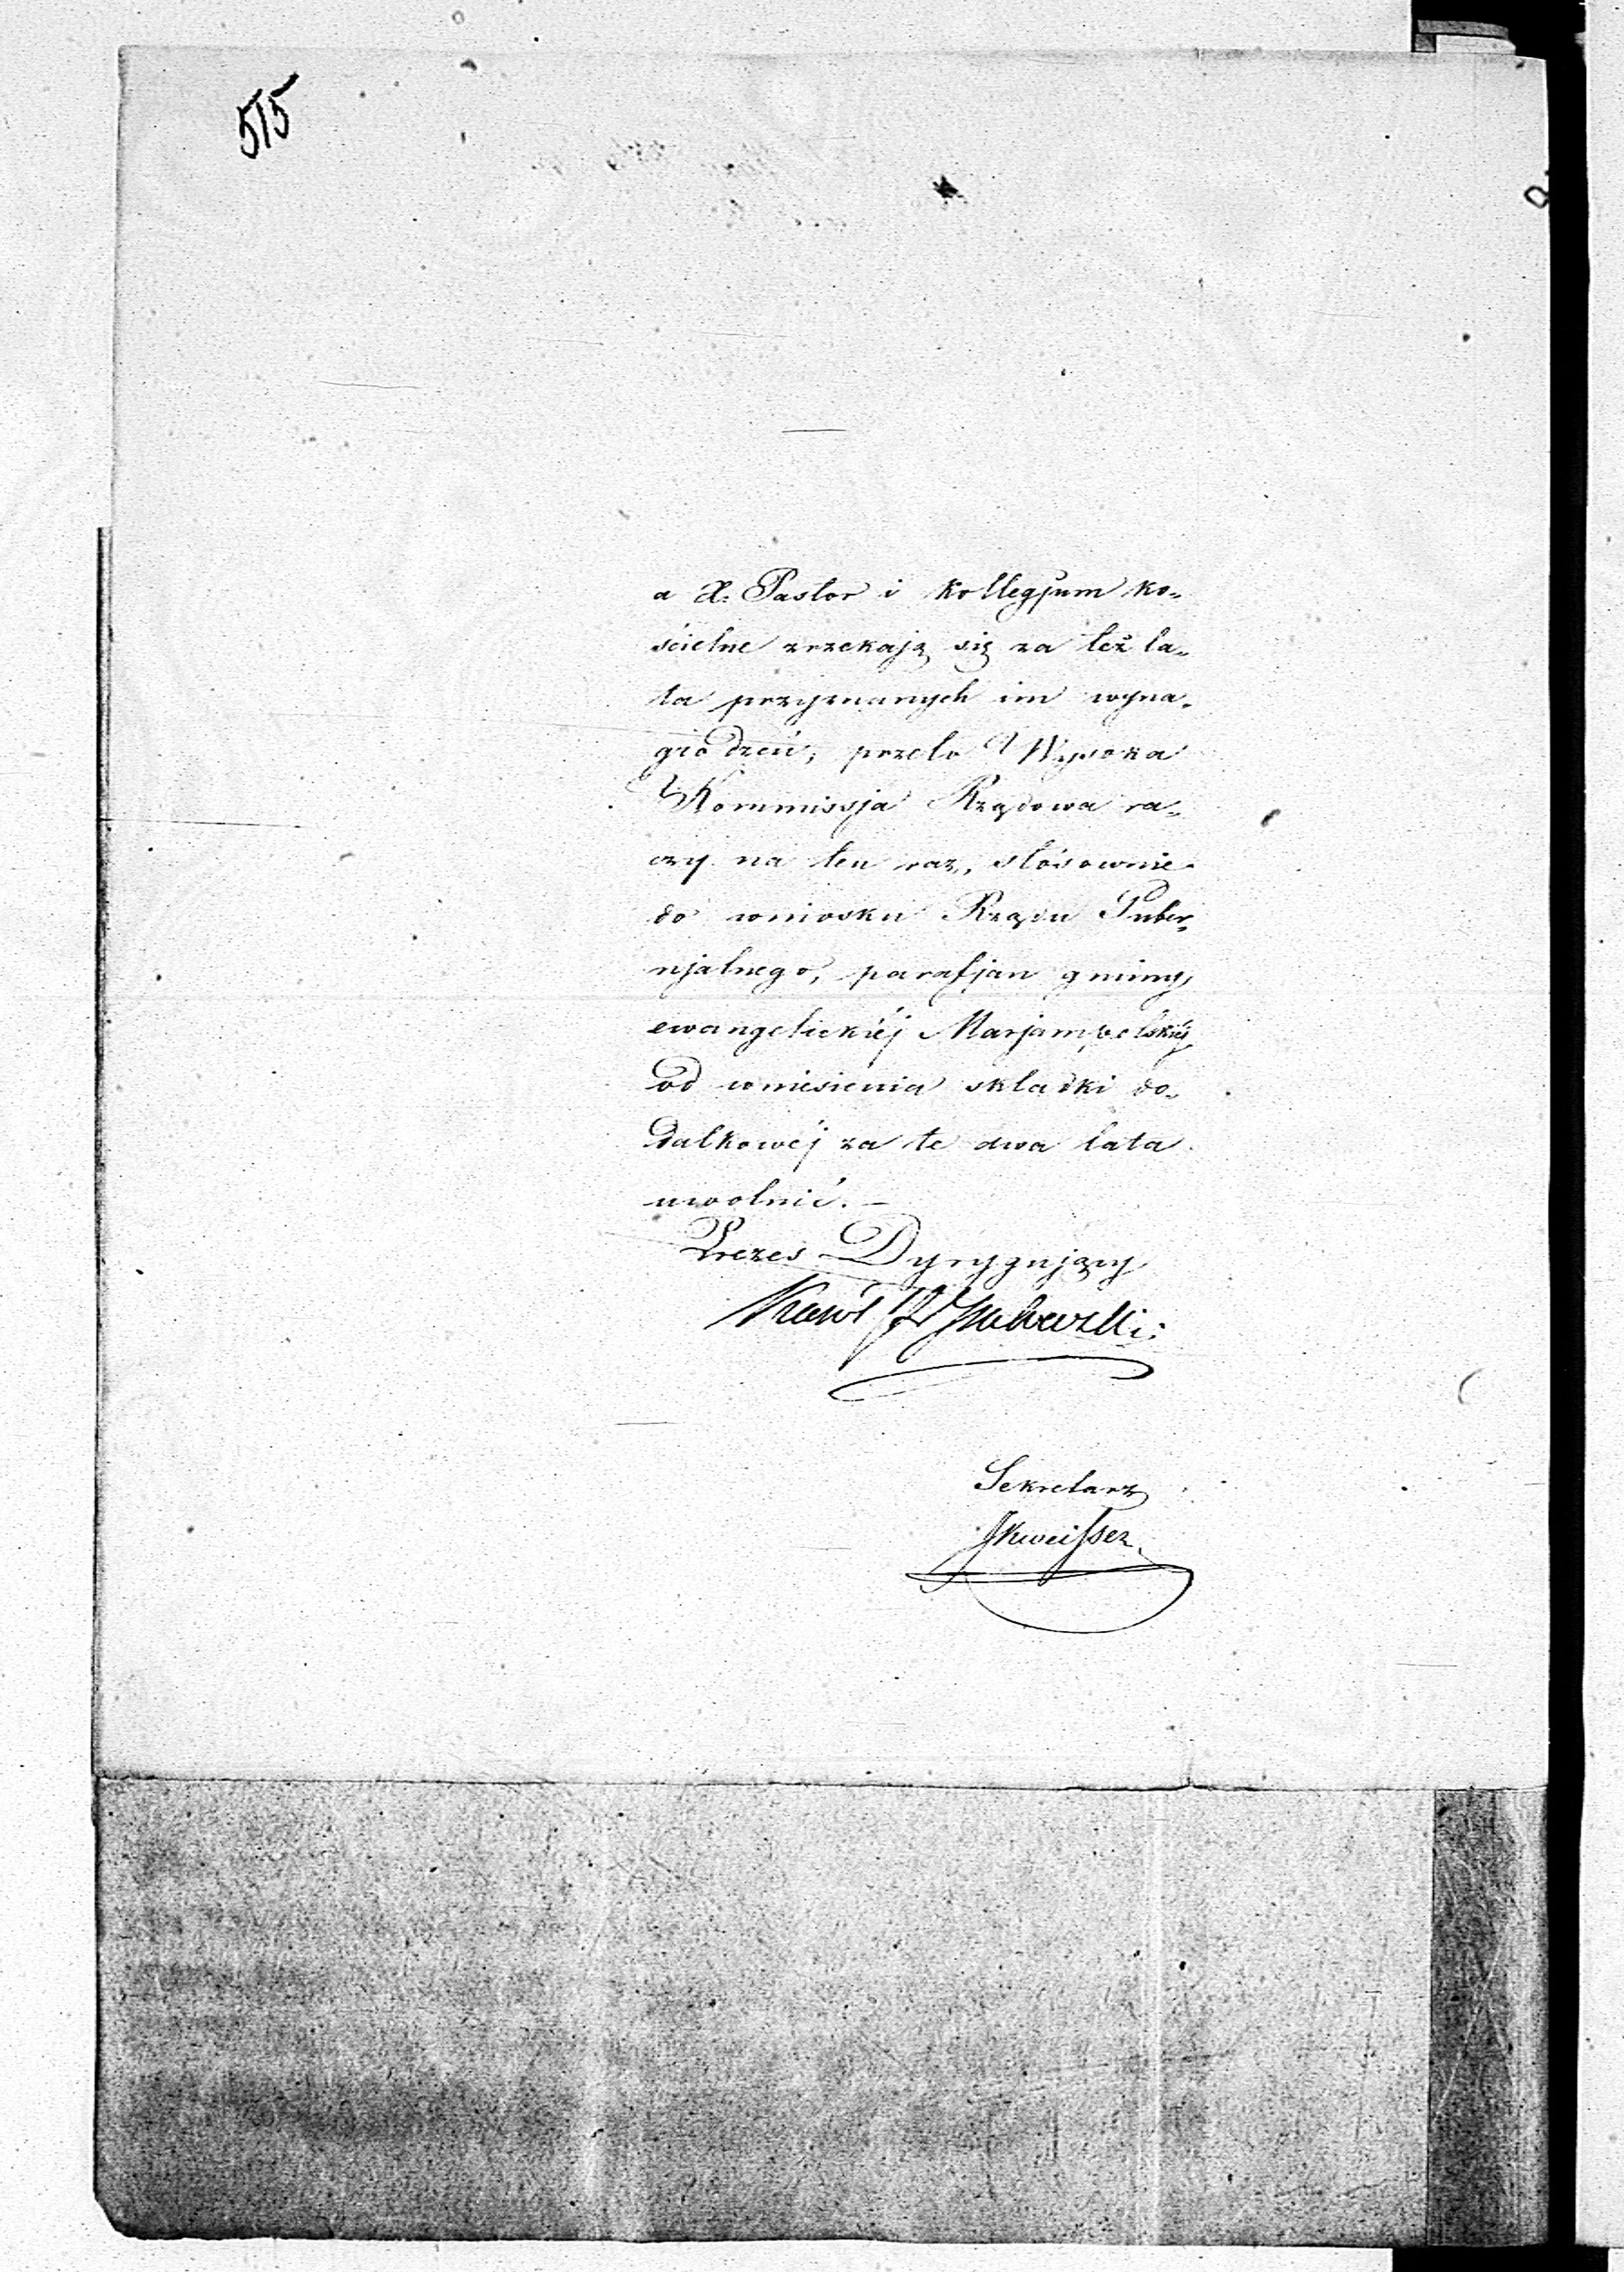 515
a X. Pastor i Kollegjum ko-
ścielne zrzekają się za też la-
ta przyznanych im wyna-
grodzeń, przeto Wysoka
Kommissja Rządowa ra-
czy na ten raz, stósownie
do wniosku Rządu Guber-
njalnego, parafjan gminy
ewangelickiéj Marjampolskiéj
od wniesienia składki do-
datkowéj za te dwa lata
uwolnić. —
Prezes Dyrygujący
Karól
Sekretarz